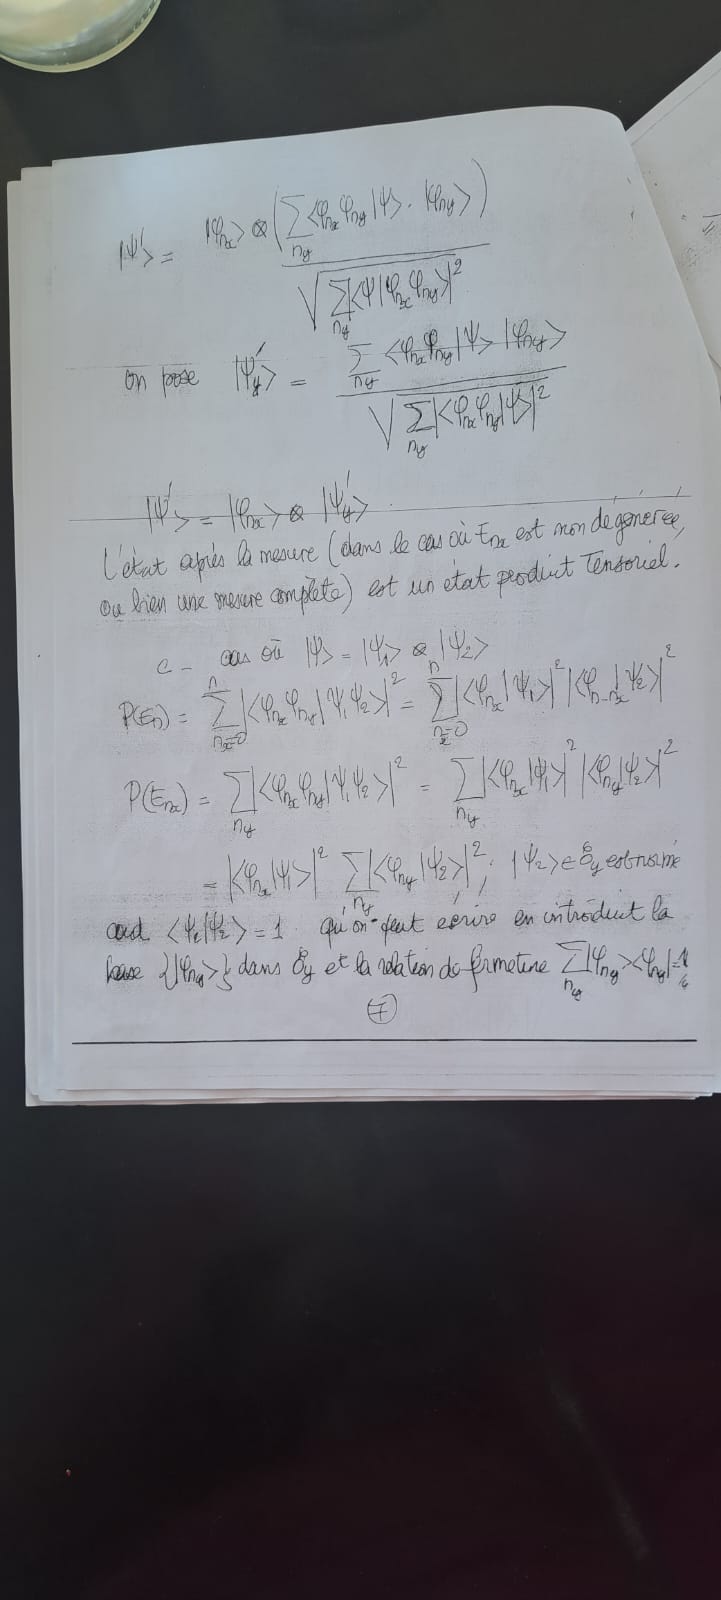 |Ψ'> = |φnx> ⊗ (Σny <φnx φny|Ψ> · |φny>) / √(Σny |<Ψ|φnx φny>|²)
on pose |Ψ'y> = Σny <φnx φny|Ψ> |φny> / √(Σny |<φnx φny|Ψ>|²)
|Ψ'> = |φnx> ⊗ |Ψ'y>
L'état après la mesure (dans le cas où Enx est non dégénérée,
ou bien une mesure complète) est un état produit Tensoriel.
c - cas où |Ψ> = |Ψ1> ⊗ |Ψ2>
P(En) = Σ(nx=0 → n) |<φnx φny|Ψ1Ψ2>|² = Σ(nx=0 → n) |<φnx|Ψ1>|² |<φn-nx|Ψ2>|²
P(Enx) = Σny |<φnx φny|Ψ1Ψ2>|² = Σny |<φnx|Ψ1>|² |<φny|Ψ2>|²
= |<φnx|Ψ1>|² Σny |<φny|Ψ2>|² ; |Ψ2> ∈ Ɛy est normé
cad <Ψ2|Ψ2> = 1 qu'on peut écrire en introduit la
base {|φny>} dans Ɛy et la relation de fermeture Σny |φny><φny| = 1
7